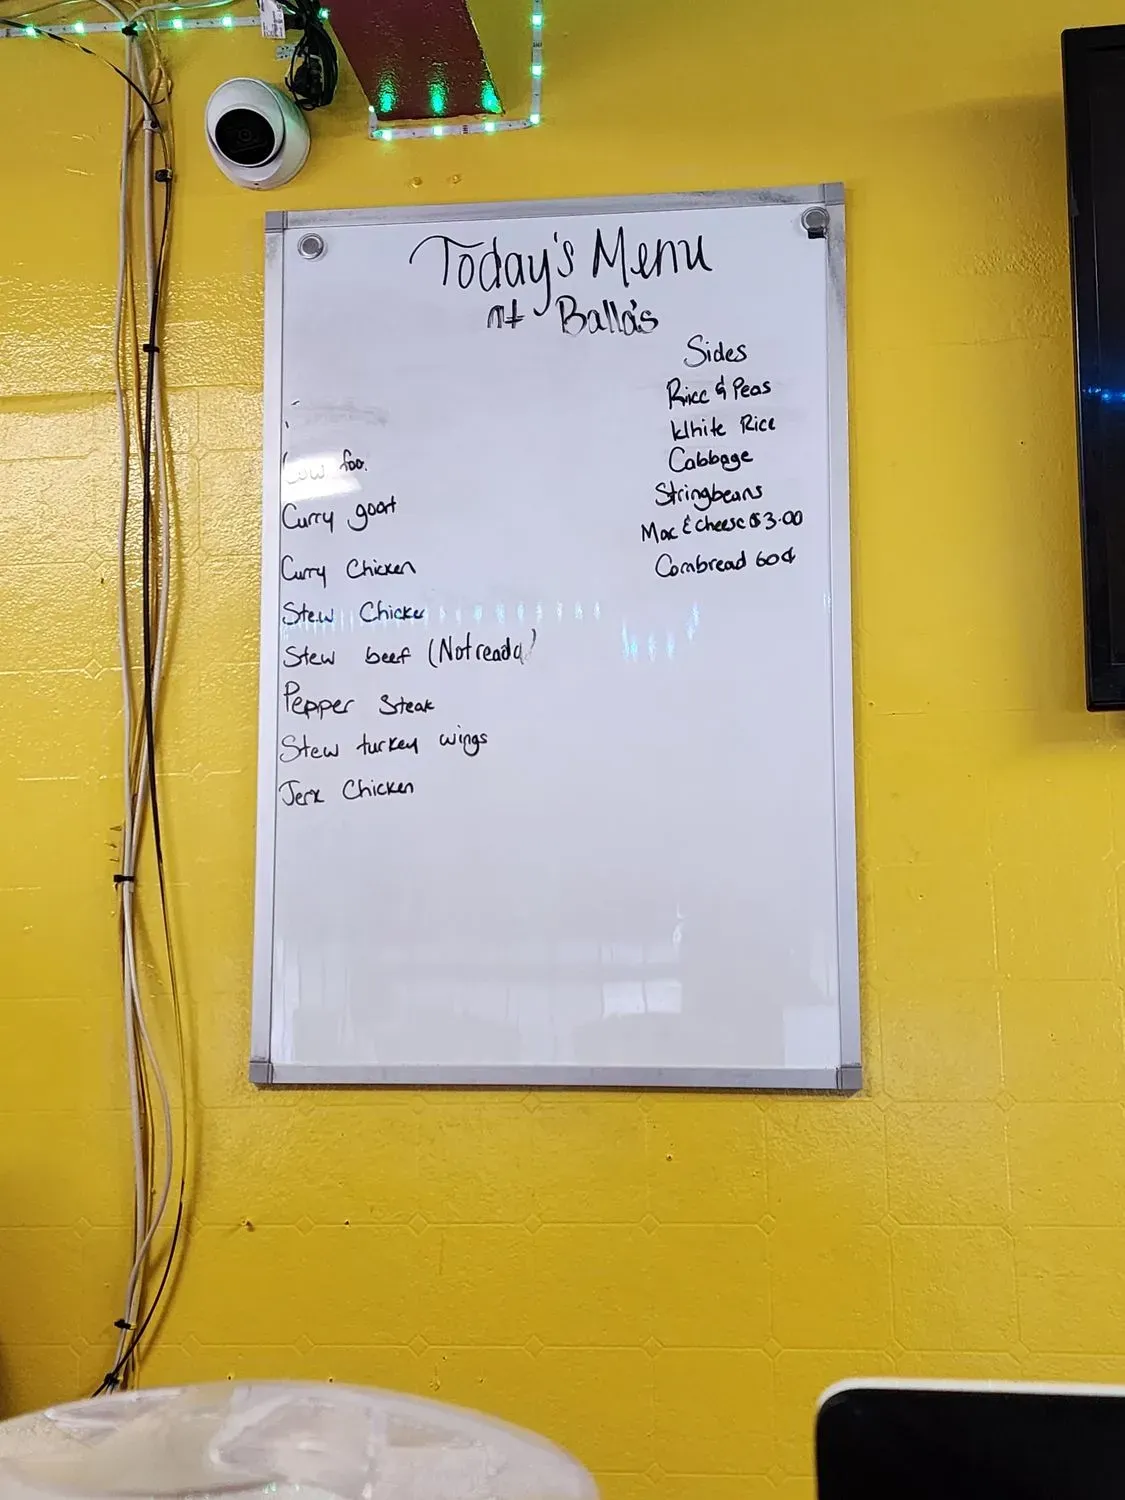 Today's Menu
at Balla's
Cow foo
Curry goat
Curry Chicken
Stew Chicken
Stew beef (Not ready)
Pepper Steak
Stew turkey wings
Jerk Chicken
Sides
Rice & Peas
White Rice
Cabbage
Stringbeans
Mac & Cheese $3.00
Cornbread 60¢